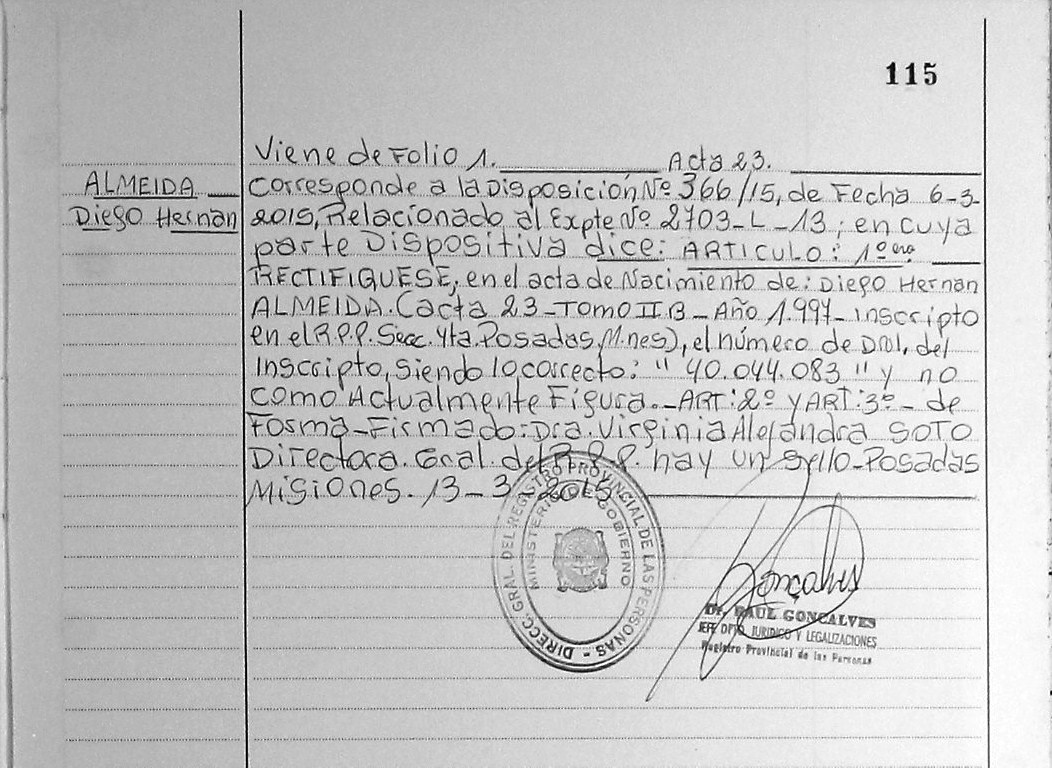 115
Viene de Folio 1. Acta 23.
ALMEIDA
Diego Hernan
Corresponde a la Disposición Nº 366/15, de Fecha 6-3-
2015, Relacionado al Expte Nº 2703-L-13; en cuya
parte Dispositiva dice: ARTICULO: 1º ero
RECTIFIQUESE, en el acta de Nacimiento de: Diego Hernan
ALMEIDA. (acta 23-TOMO II B-Año 1.997-inscripto
en el R.P.P. Secc. 4ta. Posadas, M.nes), el número de DNI, del
Inscripto, siendo lo correcto: "40.044.083" y no
como Actualmente Figura.-ART: 2º y ART: 3º- de
Forma-Firmado: Dra. Virginia Alejandra SOTO
Directora. Gral. del R.P.P. hay un sello-Posadas
Misiones. 13-3-2015
DIRECC. GRAL. DEL REGISTRO PROVINCIAL DE LAS PERSONAS -
MINISTERIO DE GOBIERNO
Gonçalves
Dr. RAUL GONCALVES
JEFE DPTO. JURIDICO Y LEGALIZACIONES
Registro Provincial de las Personas